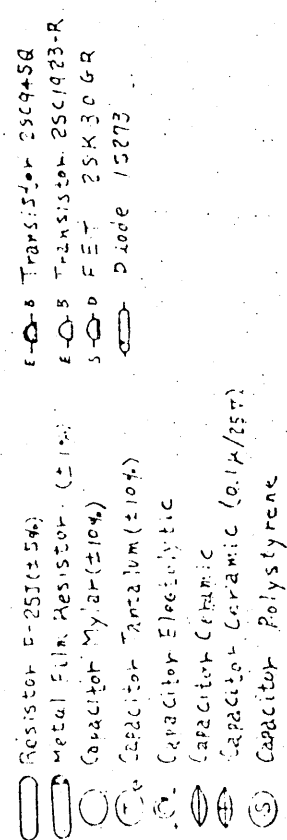 Resistor E-25J (±5%)
Metal Film Resistor (±1%)
Capacitor Mylar (±10%)
T Capacitor Tantalum (±10%)
Capacitor Electolytic
Capacitor Ceramic
Capacitor Ceramic (0.1μ/25V)
S Capacitor Polystyrene
E B Transistor 2SC945Q
E B Transistor 2SC1923-R
S D FET 2SK30GR
Diode 1S273